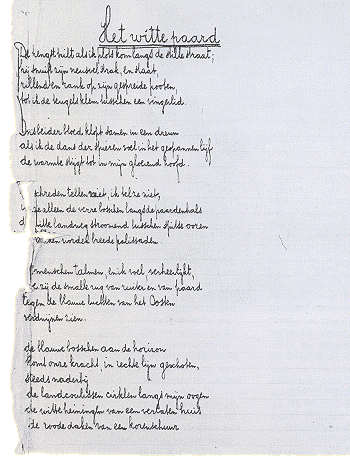 Het witte paard
De hengst trilt als ik plots kom langs de stille straat;
hij snuift zijn neusvel strak, en staat,
rillend en rank op zijn gespreide pooten,
tot ik de teugels klem tusschen een vingerlid.
Ons beider bloed klopt samen in een dreun
als ik de dans der spieren voel in het gespannen lijf
de warmte stijgt tot in mijn gloeiend hoofd.
schreden tellen niet, ik tel ze niet,
alleen de verre bosschen langs de paardenhals
witte landweg stroomend tusschen spitse ooren
worden breede palissaden.
menschen talmen, en ik voel verheerlijkt,
zij de smalle rug van ruiter en van paard
tegen de blauwe luchten van het Oosten
verdwijnen zien.
de blauwe bosschen aan de horizon
komt onze kracht, in rechte lijn geschoten,
steeds naderbij
de landcoulissen cirklen langs mijn oogen
de witte heiningen van een verlaten huis
de roode daken van een korenschuur